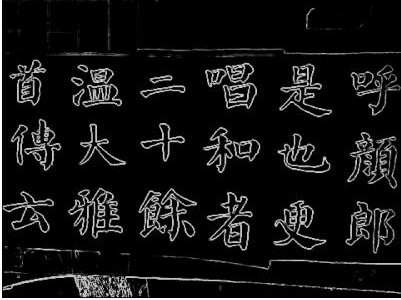 呼顔郎
是也更
唱和者
二十餘
溫大雅
首傳云